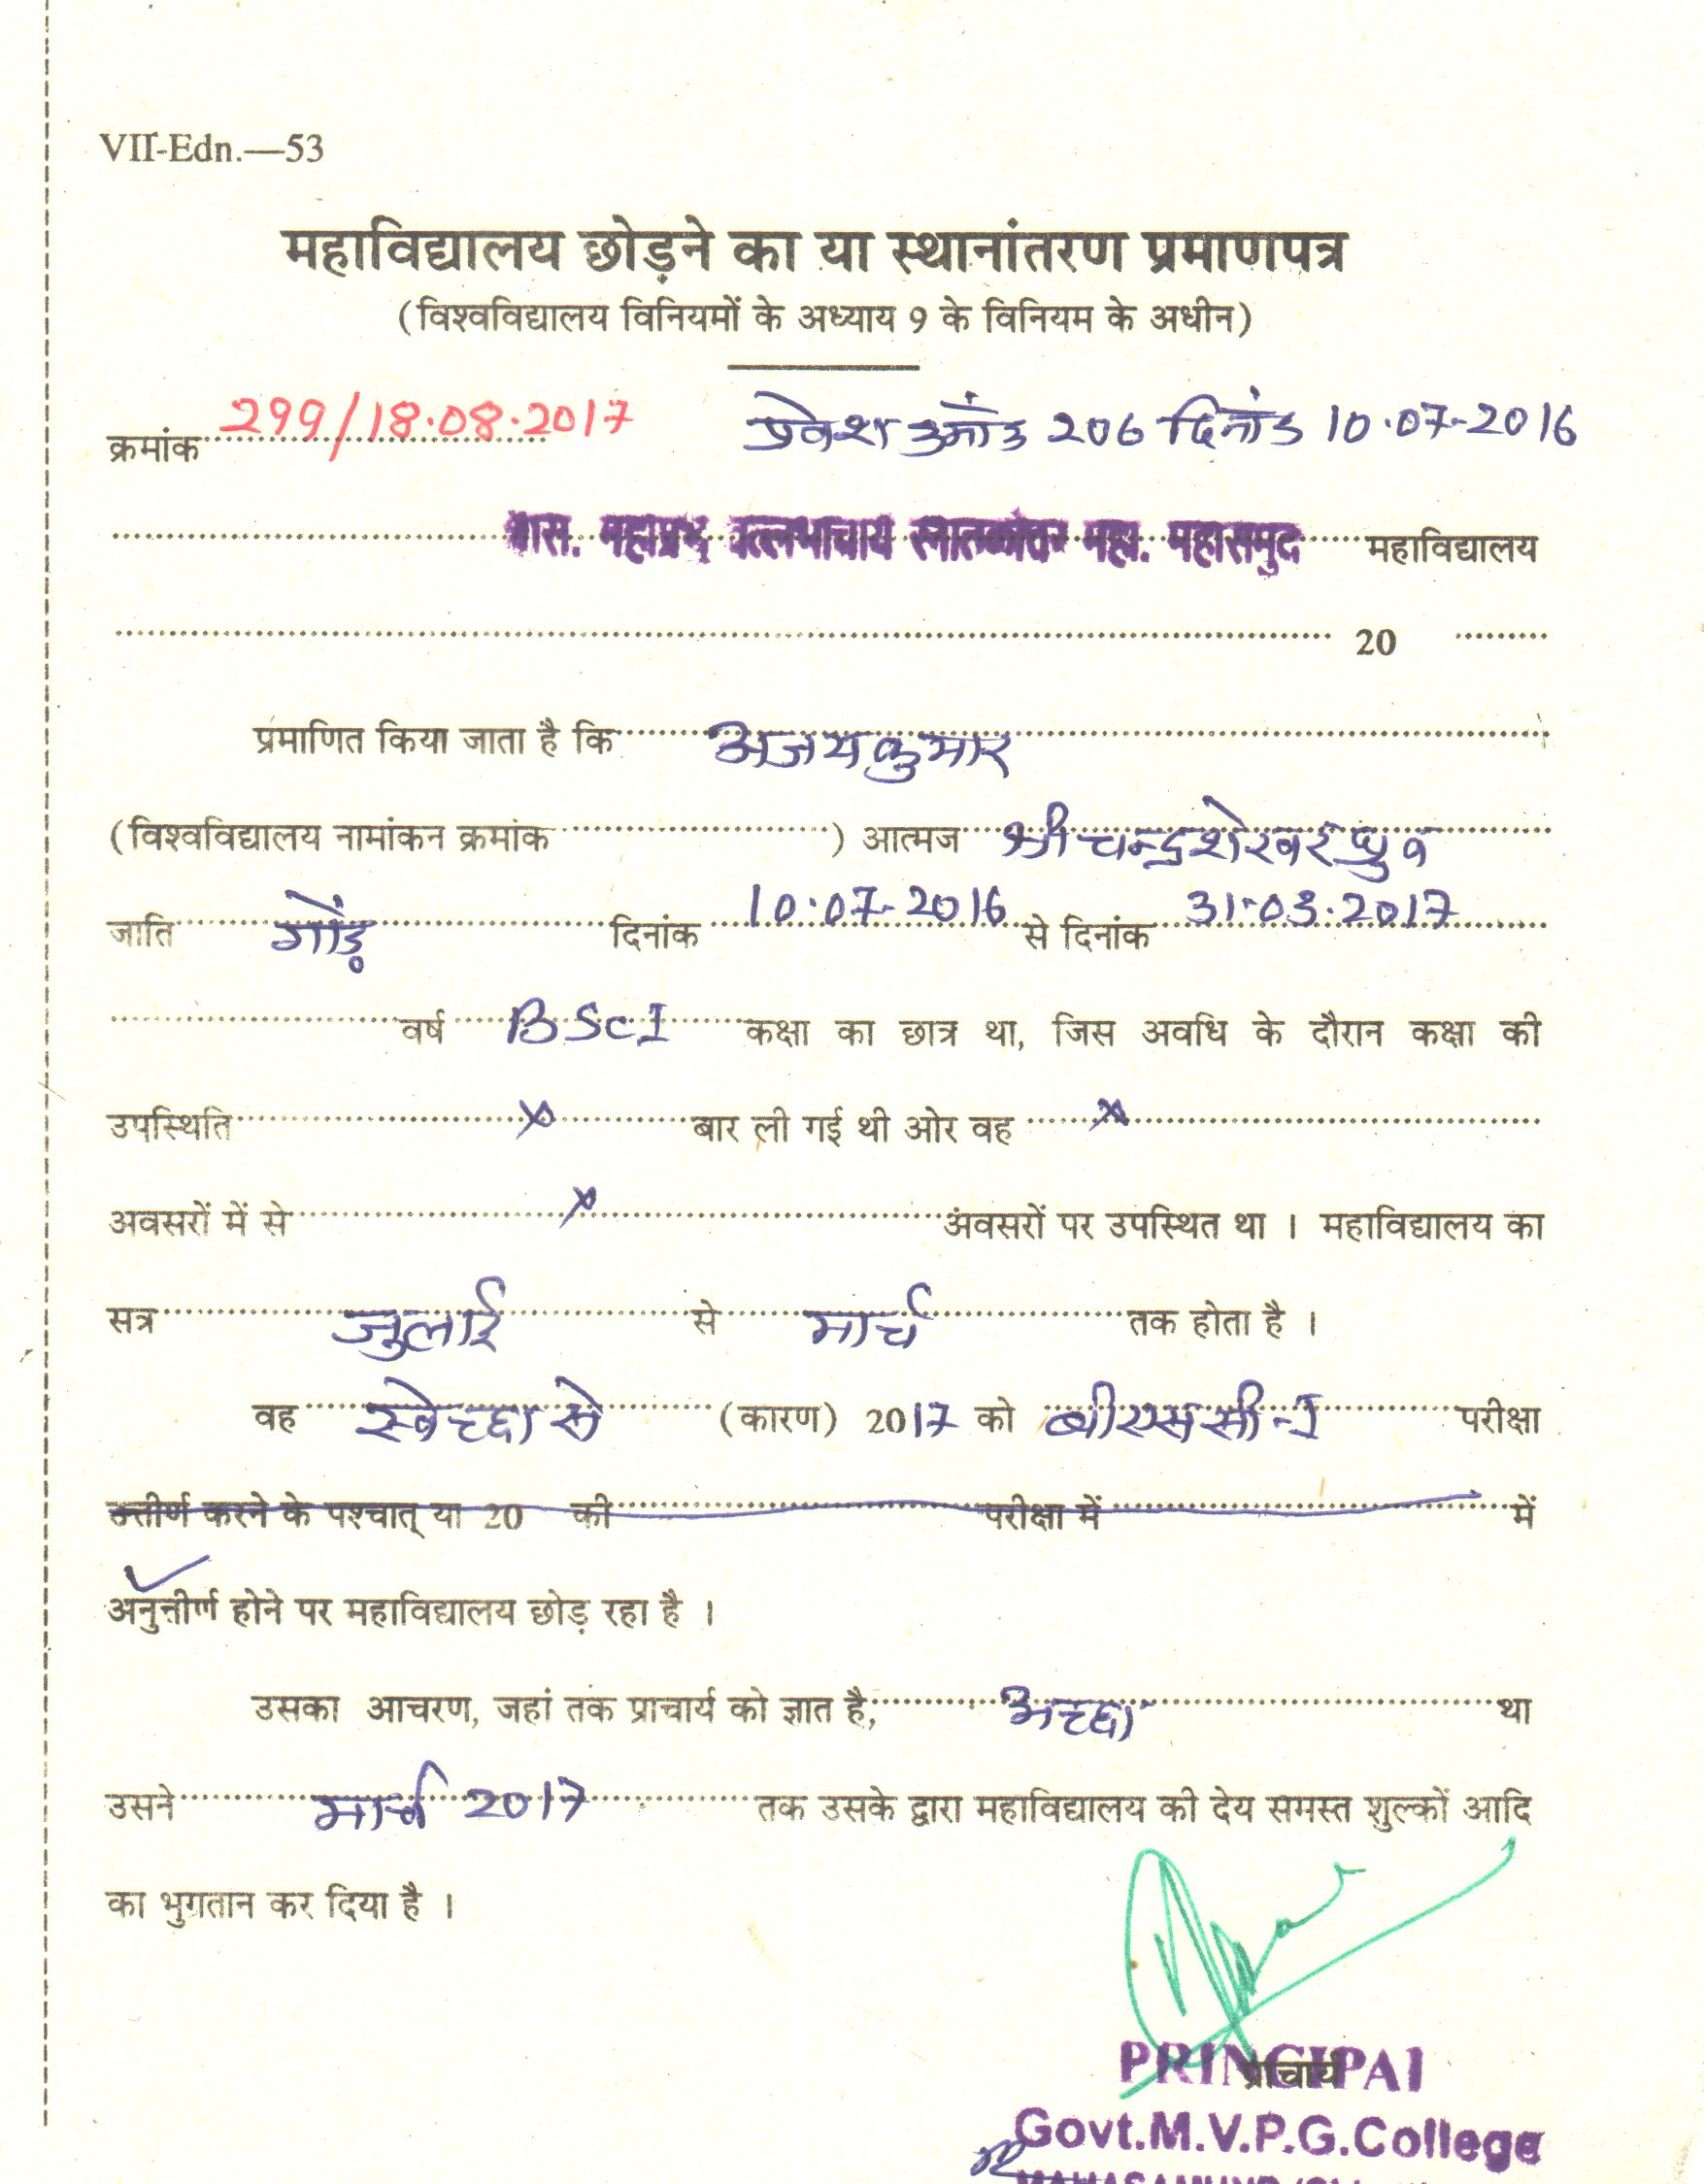 VII-Edn.—53
महाविद्यालय छोड़ने का या स्थानांतरण प्रमाणपत्र
(विश्वविद्यालय विनियमों के अध्याय 9 के विनियम के अधीन)
क्रमांक 299/18.08.2017 प्रवेश क्रमांक 206 दिनांक 10.07.2016
शास. महाप्रभु वल्लभाचार्य स्नातकोत्तर महा. महासमुंद महाविद्यालय
20
प्रमाणित किया जाता है कि अजय कुमार
(विश्वविद्यालय नामांकन क्रमांक ) आत्मज श्री चन्द्रशेखर ध्रुव
जाति गोंड़ दिनांक 10.07.2016 से दिनांक 31.03.2017
वर्ष BSc I कक्षा का छात्र था, जिस अवधि के दौरान कक्षा की
उपस्थिति x बार ली गई थी ओर वह x
अवसरों में से x अवसरों पर उपस्थित था । महाविद्यालय का
सत्र जुलाई से मार्च तक होता है ।
वह स्वेच्छा से (कारण) 2017 को बीएससी-I परीक्षा
उत्तीर्ण करने के पश्चात् या 20 की परीक्षा में में
अनुत्तीर्ण होने पर महाविद्यालय छोड़ रहा है ।
उसका आचरण, जहां तक प्राचार्य को ज्ञात है, अच्छा था
उसने मार्च 2017 तक उसके द्वारा महाविद्यालय की देय समस्त शुल्कों आदि
का भुगतान कर दिया है ।
PRINCIPAL
प्राचार्य
Govt.M.V.P.G.College